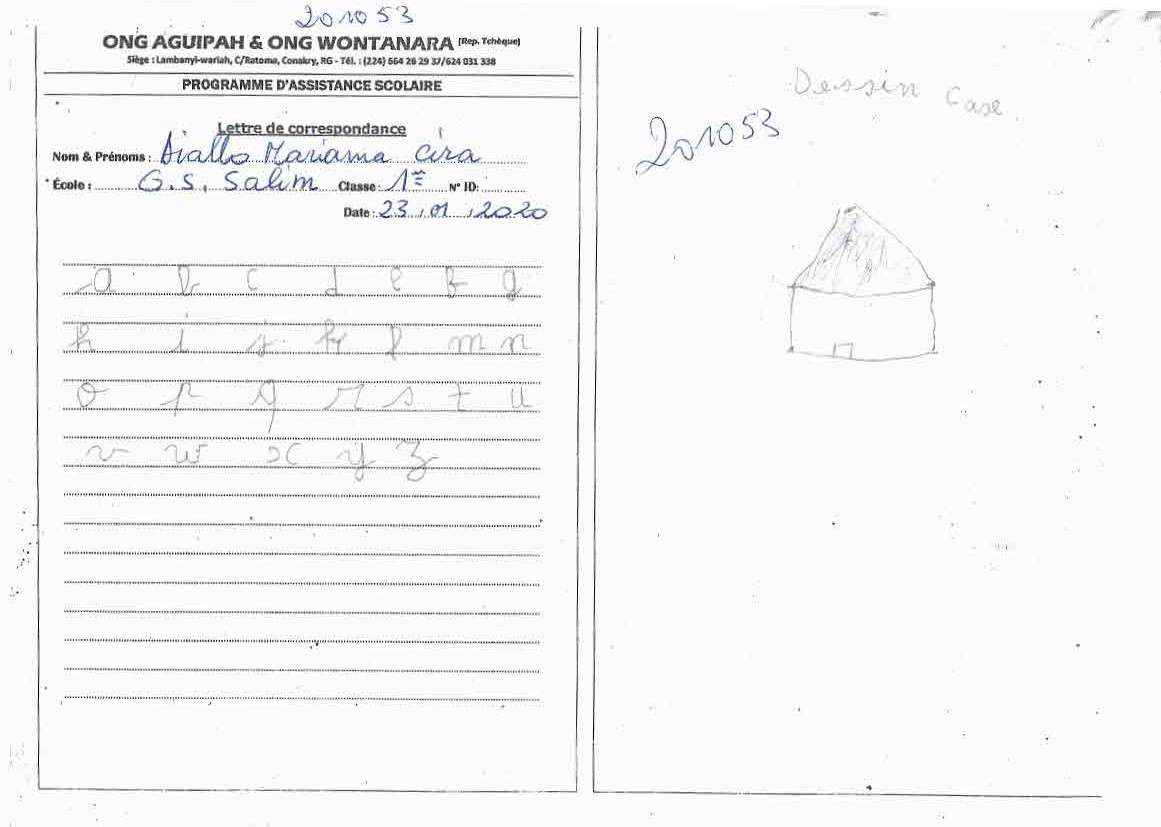 201053
ONG AGUIPAH & ONG WONTANARA (Rep. Tchèque)
Siège : Lambanyi-wariah, C/Ratoma, Conakry, RG - Tél. : (224) 664 26 29 37/624 031 338
PROGRAMME D'ASSISTANCE SCOLAIRE
Lettre de correspondance
Nom & Prénoms : Diallo Mariama Cira
École : G.S. Salim Classe : 1ère N° ID:
Date : 23/01/2020
a b c d e f g
h i j k l m n
o p q r s t u
v w x y z
Dessin Case
201053